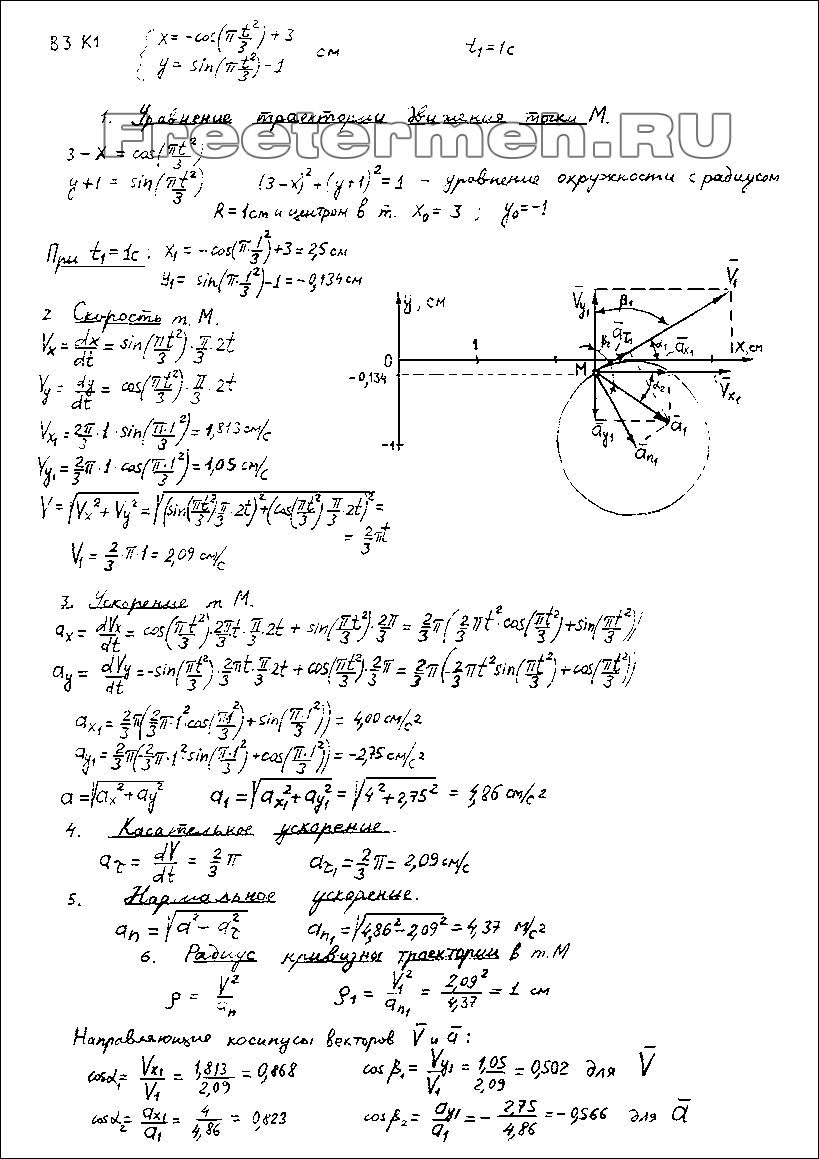 В3 К1 x = -cos(πt²/3) + 3
y = sin(πt²/3) - 1 см t₁ = 1с
1. Уравнение траектории движения точки М.
Freetermen.RU
3 - x = cos(πt²/3)
y + 1 = sin(πt²/3) (3-x)² + (y+1)² = 1 - уравнение окружности с радиусом
R = 1см и центром в т. x₀ = 3 ; y₀ = -1
При t₁ = 1с : x₁ = -cos(π·1²/3) + 3 = 2,5 см
y₁ = sin(π·1²/3) - 1 = -0,134 см
2 Скорость т. М.
Vx = dx/dt = sin(πt²/3)·π/3·2t
Vy = dy/dt = cos(πt²/3)·π/3·2t
Vx₁ = 2π/3·1·sin(π·1²/3) = 1,813 см/с
Vy₁ = 2/3π·1·cos(π·1²/3) = 1,05 см/с
V = √(Vx² + Vy²) = √((sin(πt²/3)π/3·2t)² + (cos(πt²/3)·π/3·2t)²) =
= 2/3πt
V₁ = 2/3·π·1 = 2,09 см/с
y, см
V̄y₁
β₁
V̄₁
β₂
āτ₁
α₁
āx₁
x, см
0
1
-0,134
М
α₂
V̄x₁
āy₁
ā₁
-1
ān₁
3. Ускорение т М.
ax = dVx/dt = cos(πt²/3)·2πt/3·π/3·2t + sin(πt²/3)·2π/3 = 2/3π(2/3πt²·cos(πt²/3) + sin(πt²/3))
ay = dVy/dt = -sin(πt²/3)·2πt/3·π/3·2t + cos(πt²/3)·2π/3 = 2/3π(-2/3πt²sin(πt²/3) + cos(πt²/3))
ax₁ = 2/3π(2/3π·1²cos(π·1²/3) + sin(π·1²/3)) = 4,00 см/с²
ay₁ = 2/3π(-2/3π·1²sin(π·1²/3) + cos(π·1²/3)) = -2,75 см/с²
a = √(ax² + ay²) a₁ = √(ax₁² + ay₁²) = √(4² + 2,75²) = 4,86 см/с²
4. Касательное ускорение.
aτ = dV/dt = 2/3 π aτ₁ = 2/3 π = 2,09 см/с
5. Нормальное ускорение.
an = √(a² - aτ²) an₁ = √(4,86² - 2,09²) = 4,37 м/с²
6. Радиус кривизны траектории в т. М
ρ = V²/an ρ₁ = V₁²/an₁ = 2,09²/4,37 = 1 см
Направляющие косинусы векторов V̄ и ā :
cosα₁ = Vx₁/V₁ = 1,813/2,09 = 0,868 cos β₁ = Vy₁/V₁ = 1,05/2,09 = 0,502 для V̄
cosα₂ = ax₁/a₁ = 4/4,86 = 0,823 cos β₂ = ay₁/a₁ = - 2,75/4,86 = -0,566 для ā